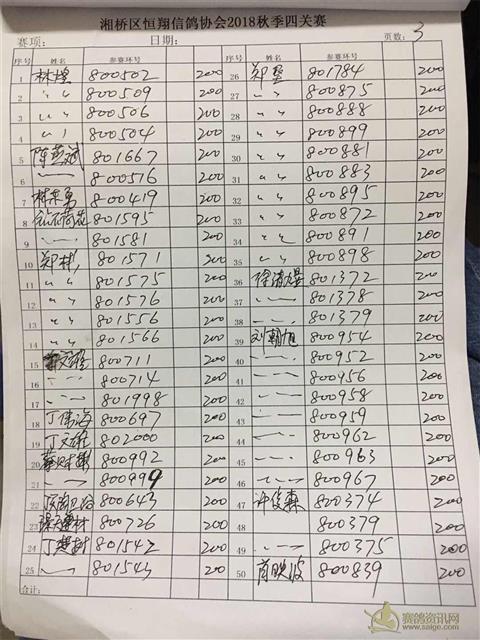 湘桥区恒翔信鸽协会2018秋季四关赛
赛项: 日期: 页数: 3
序号 姓名 参赛环号 序号 姓名 参赛环号
1 林煌 800502 200 26 郑 801784 200
2 〃 800509 200 27 〃 800875 200
3 〃 800506 200 28 〃 800888 200
4 〃 800504 200 29 〃 800899 200
5 陈 斌 801667 200 30 〃 800881 200
6 〃 800516 200 31 〃 800883 200
7 林 勇 800419 200 32 〃 800895 200
8 801595 200 33 〃 800872 200
9 〃 801581 200 34 〃 800891 200
10 郑彬 801571 200 35 〃 800898 200
11 〃 801575 200 36 徐 801372 200
12 〃 801576 200 37 〃 801378 200
13 〃 801556 200 38 〃 801379 200
14 〃 801566 200 39 刘朝旭 800954 200
15 800711 200 40 〃 800952 200
16 〃 800714 200 41 〃 800956 200
17 〃 801998 200 42 〃 800958 200
18 丁伟海 800697 200 43 〃 800959 200
19 丁文雄 802000 200 44 〃 800962 200
20 800992 200 45 〃 800963 200
21 〃 800999 200 46 〃 800967 200
22 800643 200 47 许俊森 800374 200
23 800726 200 48 800379 200
24 丁楚 801542 200 49 〃 800375 200
25 〃 801543 200 50 肖映波 800839 200
合计:
赛鸽资讯网
www.saige.com